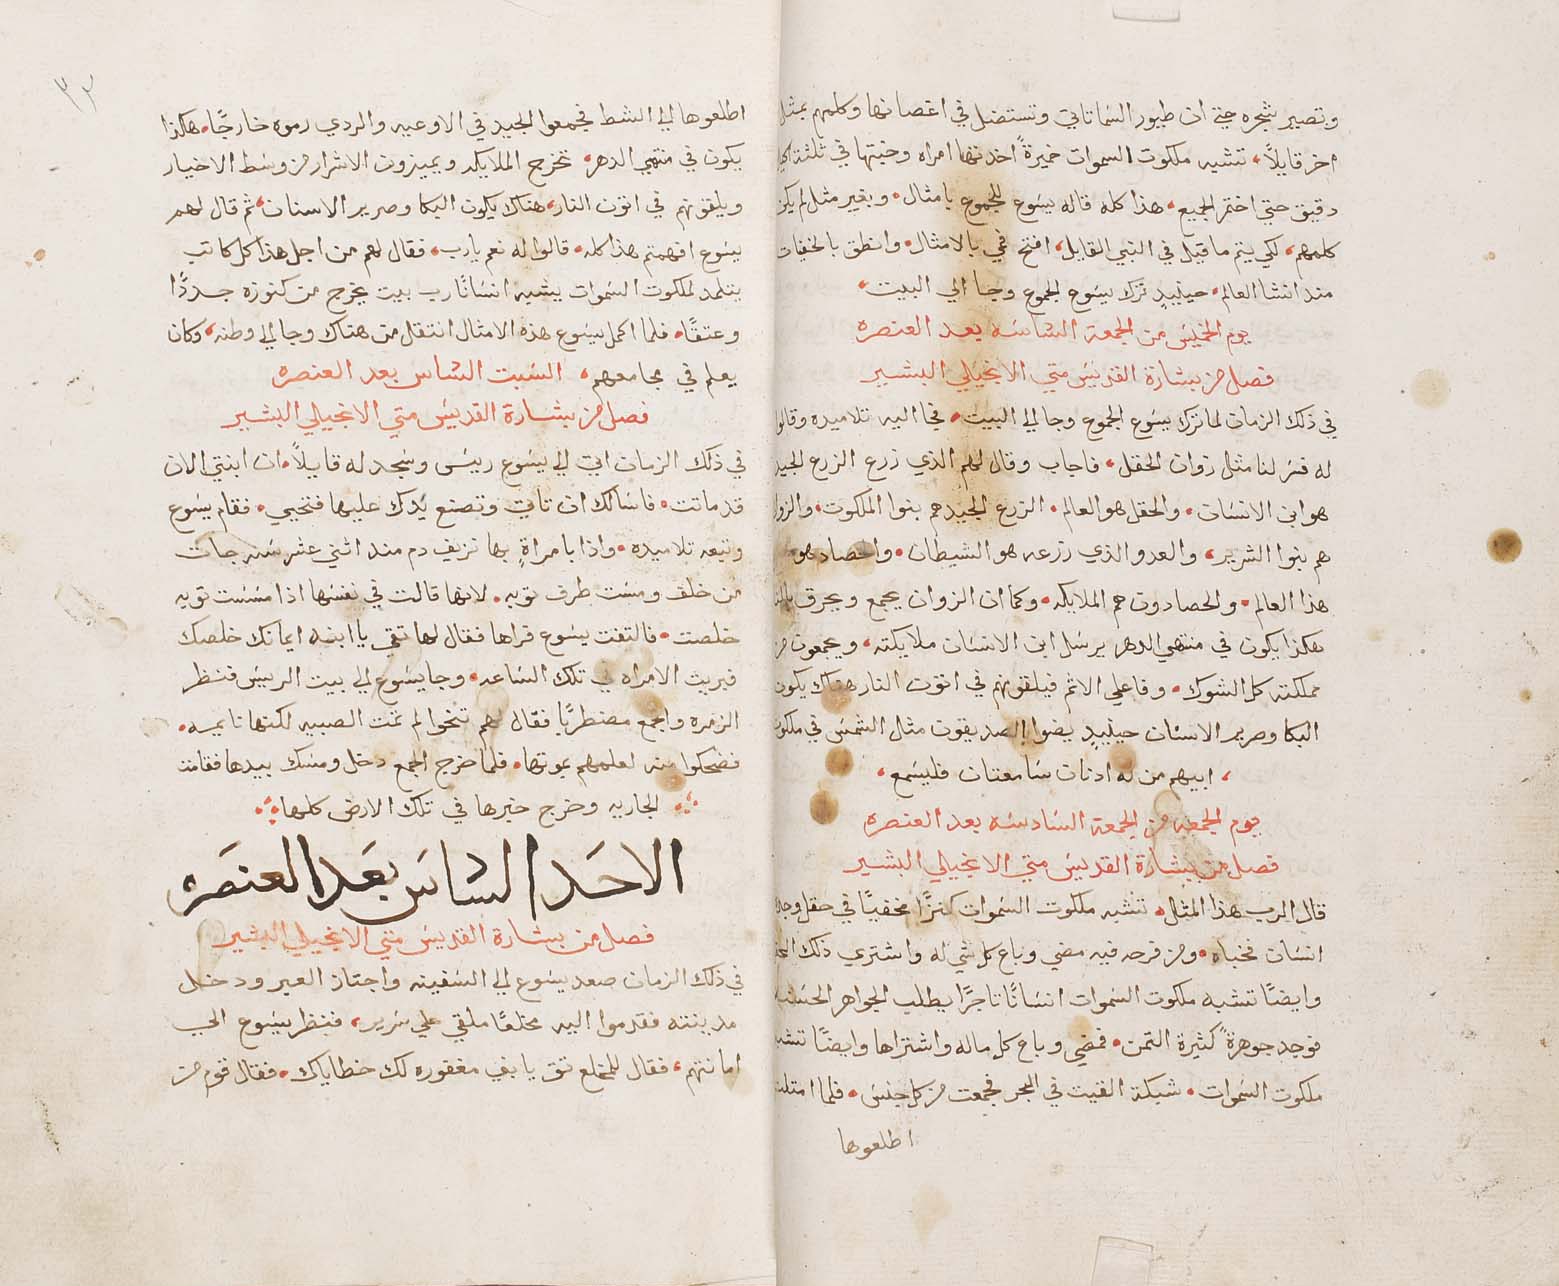 وتصير شجره حتي ان طيور السما تاتي وتستضل في اغصانها وكلمهم بمثل
اخر قايلاً، تشبه ملكوت السموات خميرةً اخدتها امراه وخبتها في ثلثة
دقيق حتي اختمر الجميع، هذا كله قاله يسوع للجموع بامثال، وبغير مثل لم يكن
كلمهم، لكي يتم ما قيل في النبي القايل، افتح فمي بالامثال، وانطق بالخفيات
مند انشا العالم، حينيدٍ ترك يسوع الجموع وجا الي البيت،
يوم الخميس من الجمعة السادسه بعد العنصره
فصل من بشارة القديس متي الانجيلي البشير
في ذلك الزمان لما ترك يسوع الجموع وجا الي البيت، فجا اليه تلاميده وقالوا
له فسر لنا مثل زوان الحقل، فاجاب وقال لهم الذي زرع الزرع الجيد
هو ابن الانسان، والحقل هو العالم، الزرع الجيد هم بنوا الملكوت، والزوان
هم بنوا الشرير، والعدو الذي زرعه هو الشيطان، والحصاد هو
هذا العالم، والحصادون هم الملايكه، وكما ان الزوان يجمع ويحرق بالنار
هكذا يكون في منتهي الدهر يرسل ابن الانسان ملايكته، ويجمعون من
مملكته كل الشوك، وفاعلي الاثم فيلقونهم في اتون النار هناك يكون
البكا وصرير الاسنان حينيدٍ يضوا الصديقون مثل الشمس في ملكوت
، ابيهم من له ادنان سامعتان فليسمع،
يوم الجمعه من الجمعة السادسه بعد العنصره
فصل من بشارة القديس متي الانجيلي البشير
قال الرب هذا المثل، تشبه ملكوت السموات كنزًا مخفيًا في حقل وجده
انسان فخباه، ومن فرحه فيه مضي وباع كل شي له واشتري ذلك الحقل
وايضًا تشبه ملكوت السموات انسانًا تاجرًا يطلب الجواهر الحسنه
فوجد جوهرةً كثيرة التمن، فمضي وباع كل ماله واشتراها وايضًا تشبه
ملكوت السموات، شبكة القيت في البحر فجمعت من كل جنس، فلما امتلت
اطلعوها
٣٢
اطلعوها الي الشط فجمعوا الجيد في الاوعيه والردي رموه خارجًا، هكذا
يكون في منتهي الدهر، تخرج الملايكه ويميزون الاشرار من وسط الاخيار
ويلقونهم في اتون النار، هناك يكون البكا وصرير الاسنان، ثم قال لهم
يسوع افهمتم هذا كله، قالوا له نعم يارب، فقال لهم من اجل هذا كل كاتب
يتلمد لملكوت السموات يشبه انسانًا رب بيت يخرج من كنوزه جددًا
وعتقًا، فلما اكمل يسوع هذه الامثال انتقل من هناك وجا الي وطنه، وكان
يعلم في مجامعهم، السبت السادس بعد العنصره
فصل من بشارة القديس متي الانجيلي البشير
في ذلك الزمان اتي الي يسوع رييس وسجد له قايلاً، ان ابنتي الان
قد ماتت، فاسالك ان تاتي وتضع يدك عليها فتحيي، فقام يسوع
وتبعه تلاميده، واذا بامراةٍ بها نزيف دم مند اثني عشر سنه جات
من خلف ومست طرف ثوبه، لانها قالت في نفسها اذا مسست ثوبه
خلصت، فالتفت يسوع فراها فقال لها ثقي يا ابنه ايمانك خلصك
فبريت الامراه في تلك الساعه، وجا يسوع الي بيت الرييس فنظر
الزمره والجمع مضطربًا فقال لهم تنحوا لم تمت الصبيه لكنها نايمه،
فضحكوا منه لعلمهم بموتها، فلما خرج الجمع دخل ومسك بيدها فقامت
الجاريه وخرج خبرها في تلك الارض كلها
الاحد السادس بعد العنصره
فصل من بشارة القديس متي الانجيلي البشير
في ذلك الزمان صعد يسوع الي السفينه واجتاز العبر ودخل
مدينته فقدموا اليه مخلعًا ملقي علي سرير، فنظر يسوع الي
امانتهم، فقال للمخلع ثق يا بني مغفوره لك خطاياك، فقال قوم من